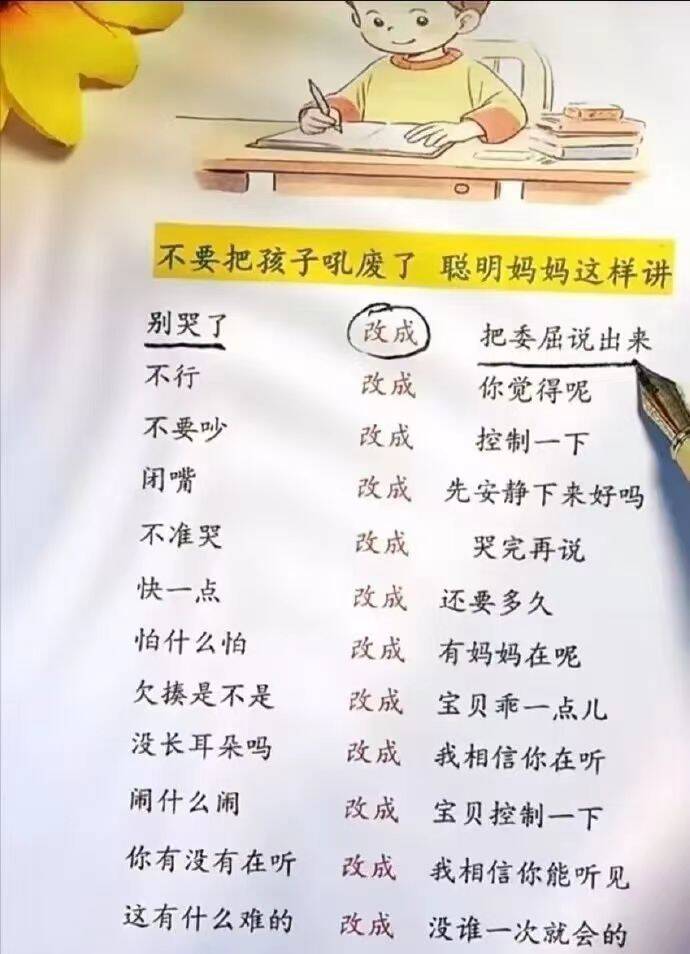 不要把孩子吼废了 聪明妈妈这样讲
别哭了 改成 把委屈说出来
不行 改成 你觉得呢
不要吵 改成 控制一下
闭嘴 改成 先安静下来好吗
不准哭 改成 哭完再说
快一点 改成 还要多久
怕什么怕 改成 有妈妈在呢
欠揍是不是 改成 宝贝乖一点儿
没长耳朵吗 改成 我相信你在听
闹什么闹 改成 宝贝控制一下
你有没有在听 改成 我相信你能听见
这有什么难的 改成 没谁一次就会的